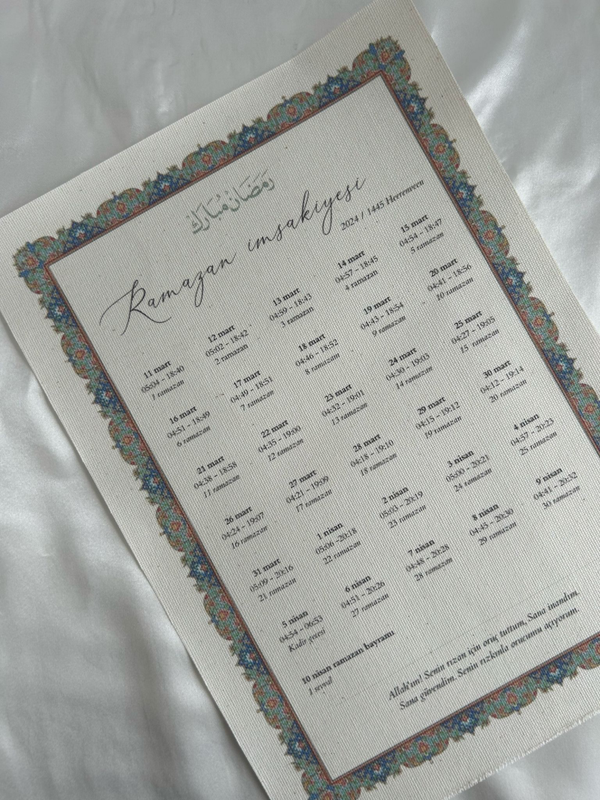 رمضان مبارك
Ramazan imsakiyesi
2024 / 1445 Heerenveen
11 mart
05:04 – 18:40
1 ramazan
12 mart
05:02 – 18:42
2 ramazan
13 mart
04:59 – 18:43
3 ramazan
14 mart
04:57 – 18:45
4 ramazan
15 mart
04:54 – 18:47
5 ramazan
16 mart
04:51 – 18:49
6 ramazan
17 mart
04:49 – 18:51
7 ramazan
18 mart
04:46 – 18:52
8 ramazan
19 mart
04:43 – 18:54
9 ramazan
20 mart
04:41 – 18:56
10 ramazan
21 mart
04:38 – 18:58
11 ramazan
22 mart
04:35 – 19:00
12 ramazan
23 mart
04:32 – 19:01
13 ramazan
24 mart
04:30 – 19:03
14 ramazan
25 mart
04:27 – 19:05
15 ramazan
26 mart
04:24 – 19:07
16 ramazan
27 mart
04:21 – 19:09
17 ramazan
28 mart
04:18 – 19:10
18 ramazan
29 mart
04:15 – 19:12
19 ramazan
30 mart
04:12 – 19:14
20 ramazan
31 mart
05:09 – 20:16
21 ramazan
1 nisan
05:06 –20:18
22 ramazan
2 nisan
05:03 – 20:19
23 ramazan
3 nisan
05:00 – 20:21
24 ramazan
4 nisan
04:57 – 20:23
25 ramazan
5 nisan
04:54 – 06:53
Kadir gecesi
6 nisan
04:51 – 20:26
27 ramazan
7 nisan
04:48 – 20:28
28 ramazan
8 nisan
04:45 – 20:30
29 ramazan
9 nisan
04:41 – 20:32
30 ramazan
10 nisan ramazan bayramı
1 şevval
Allah'ım! Senin rızan için oruç tuttum, Sana inandım,
Sana güvendim. Senin rızkınla orucumu açıyorum.